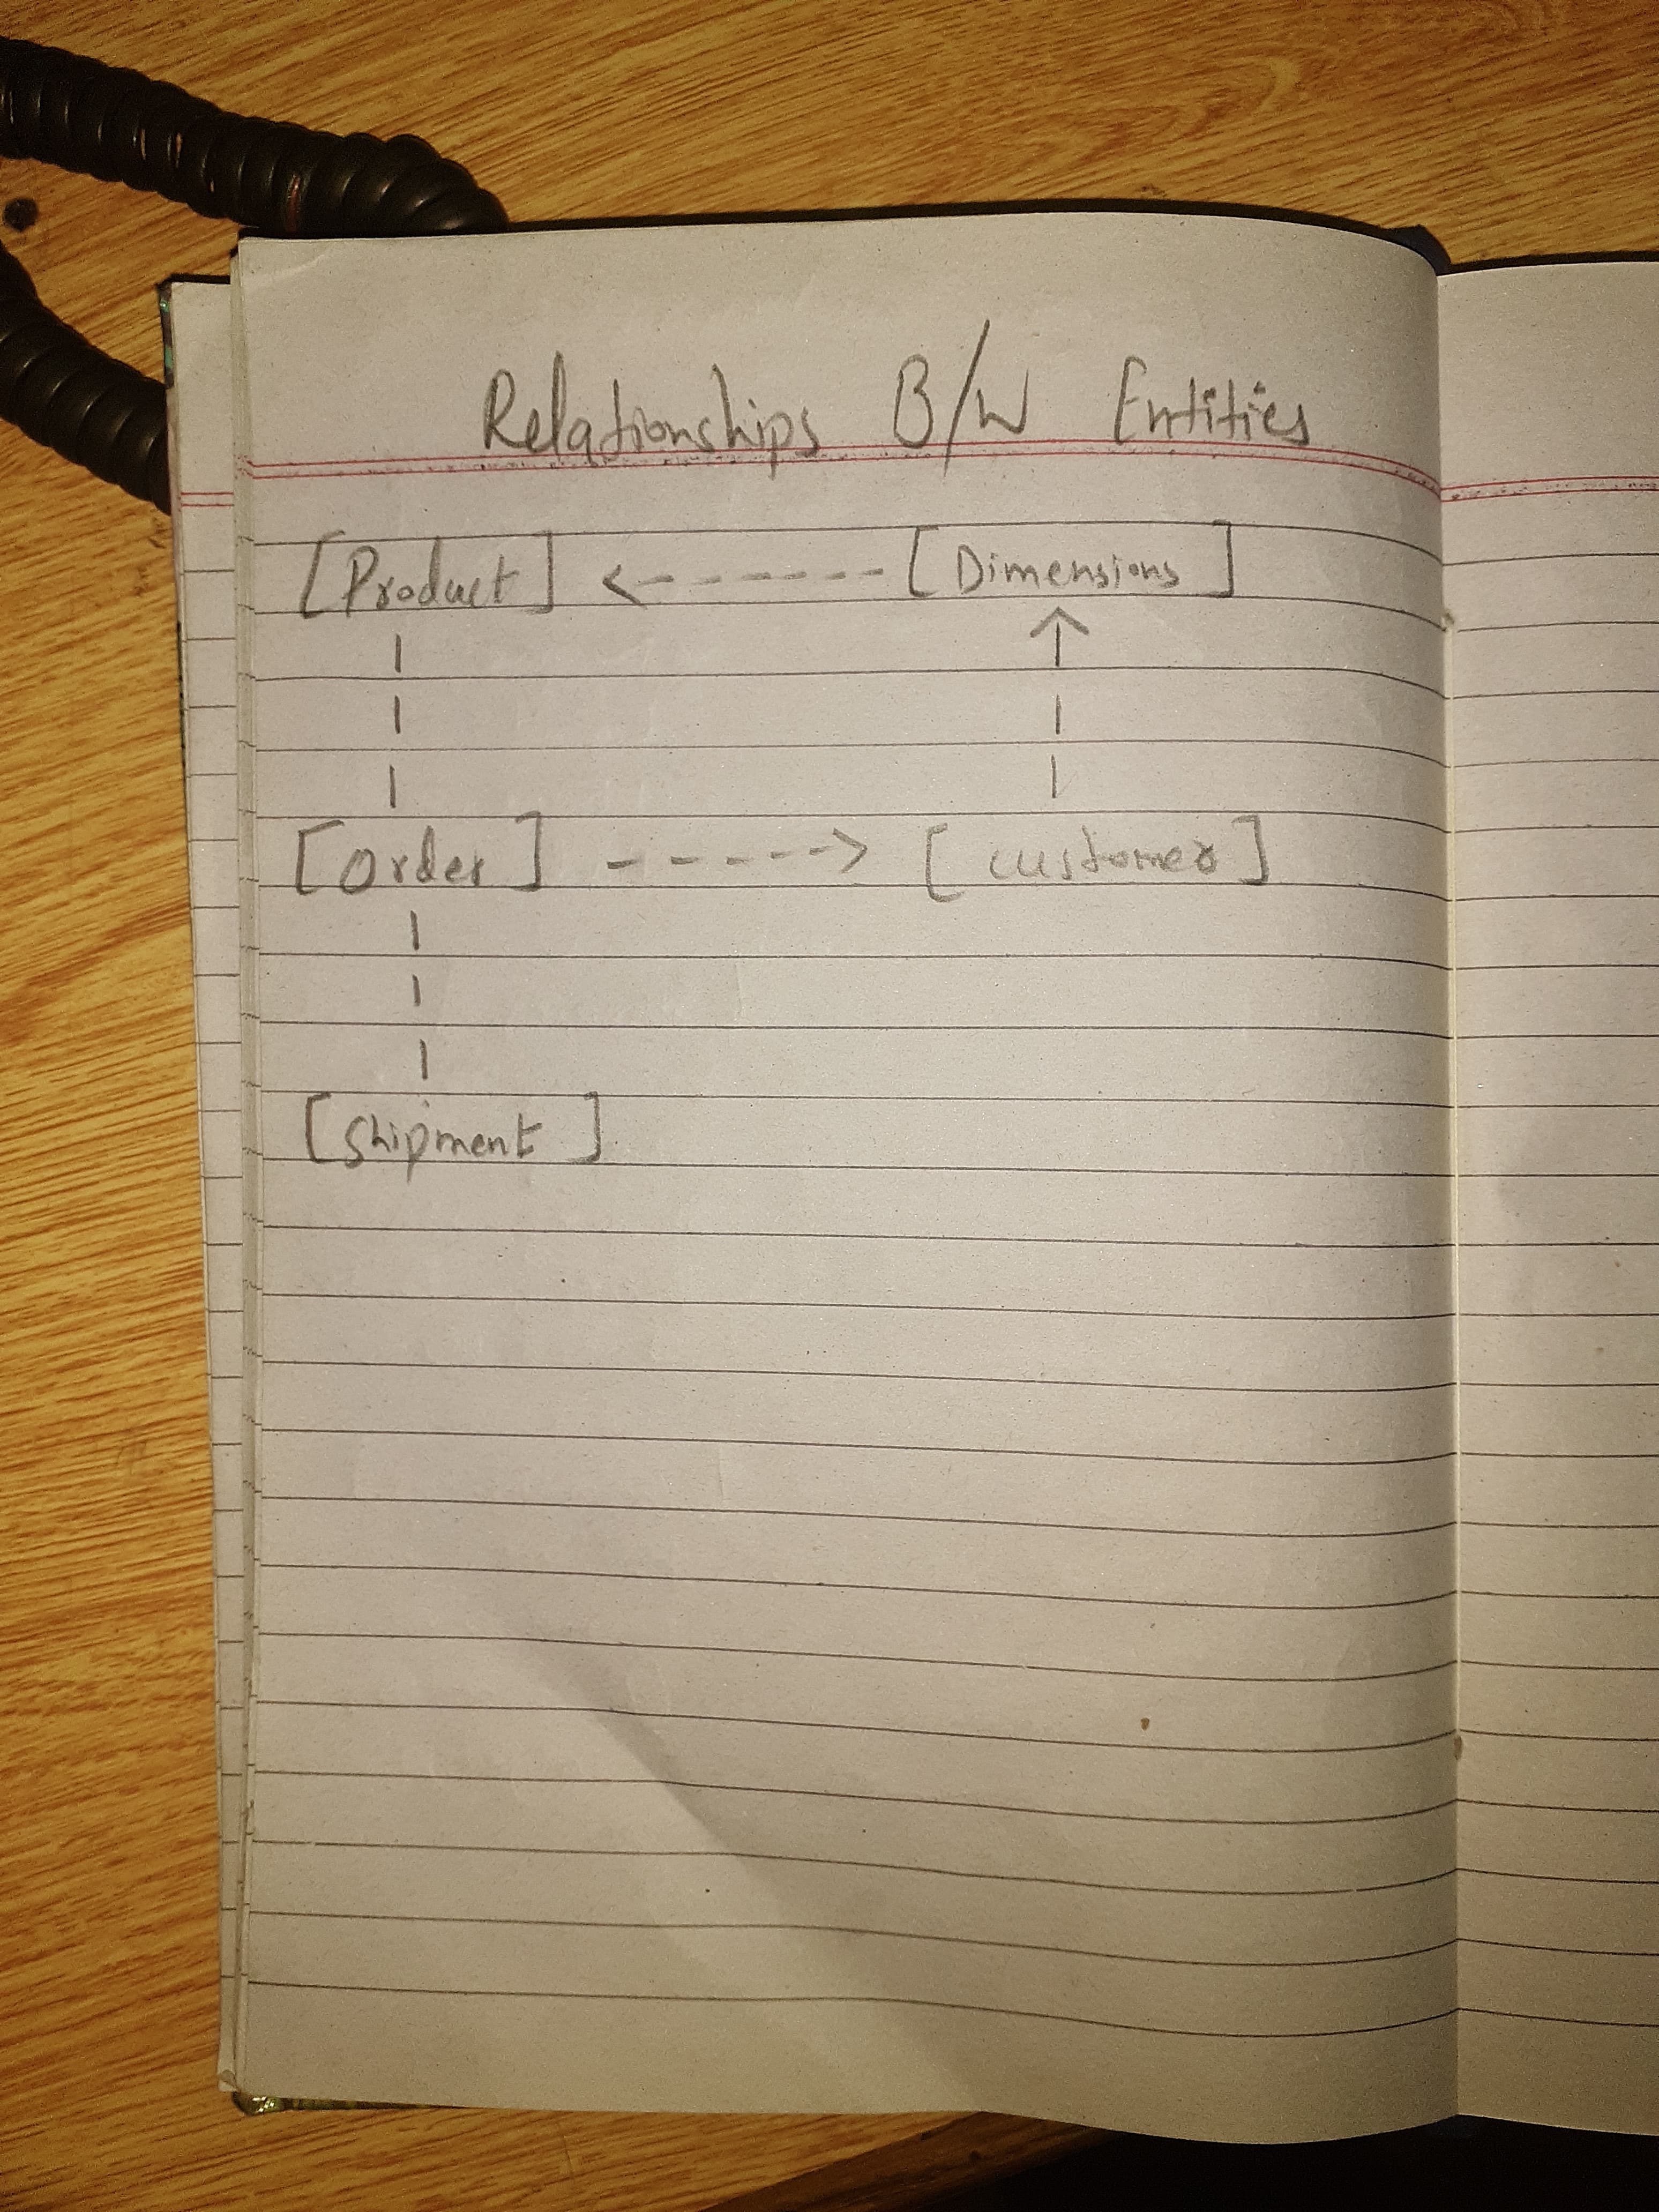 Relationships B/W Entities
[Product] <------- [Dimensions]
[Order] -----> [customer]
[Shipment]